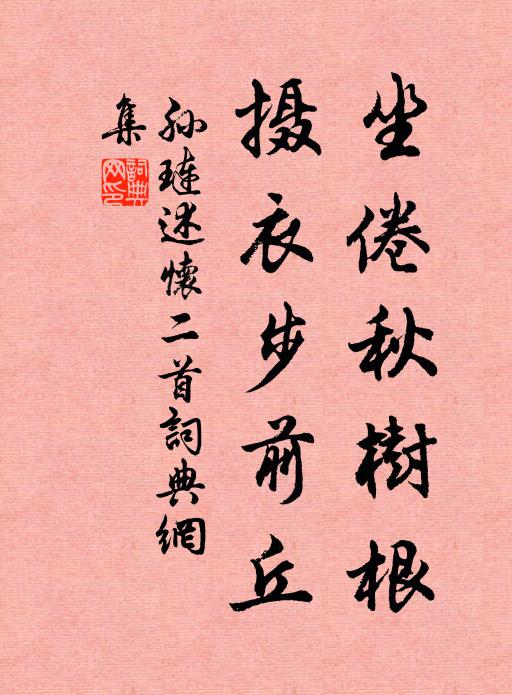 坐倦秋樹根
摄衣步前丘
孙琏述懷二首詞典網
集
詞典網印